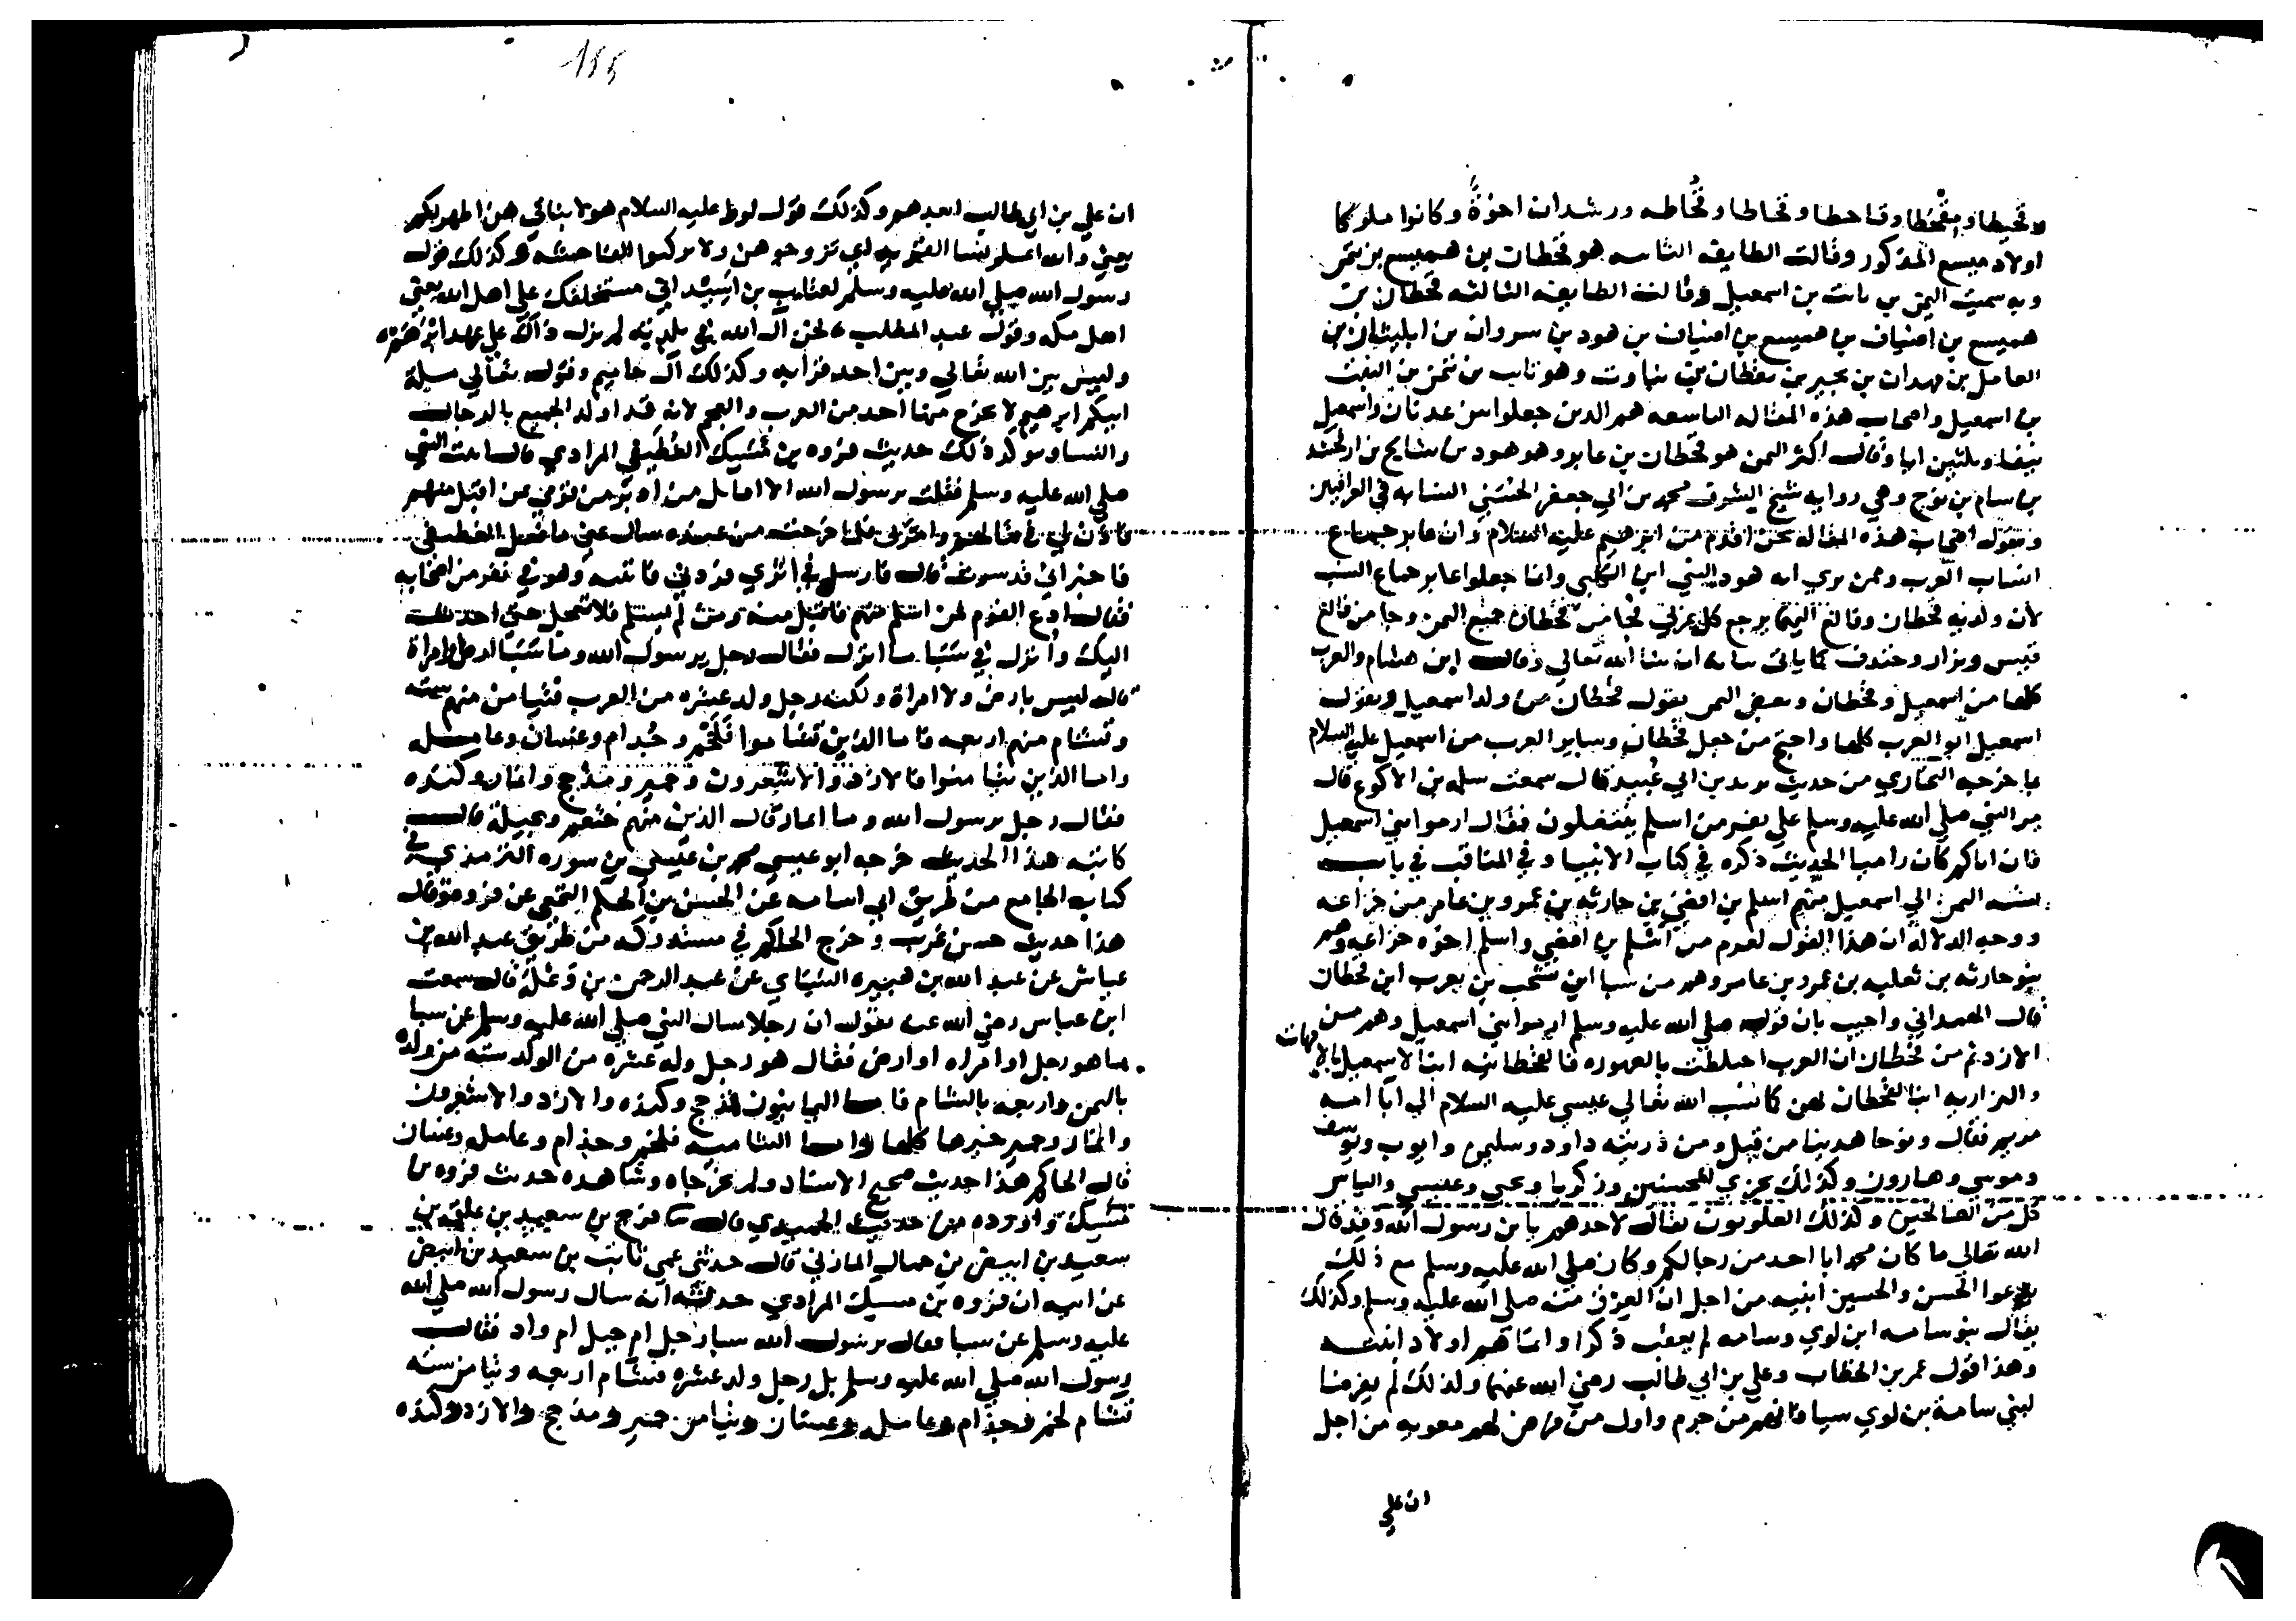 لا قحيطا ومقحطا وقاحطا وقحالطا وقحاطه ورشدان اخوة وكانوا ملوكا
اولاد ميسع المذكور وقالت الطايفه الثامنه هو قحطان بن هميسع بن تيمن
وبه سميت اليمن بن نابت بن اسمعيل وقالت الطايفه الثالثه قحطان بن
هميسع بن افنيان بن هميسع بن افنيان بن هود بن سروان بن
العامل بن مهدان بن يحيىر بن يقطان بن بناوت وهو نابت بن تيمن بن النبت
بن اسمعيل واصحاب هذه المقاله التاسعه هم الذين جعلوا بين عدنان واسمعيل
نيفا وثلثين ابا وقالت اكثر اليمن هو قحطان بن عابر وهو هود بن شالخ بن ارفخشد
بن سام بن نوح وهي روايه شيخ الشرف محمد بن ابي جعفر الحسني النسابه في العراقيين
وتقول اصحاب هذه المقاله نحن اقدم من ابرهيم عليه السلام وان عابر جماع
انساب العرب وممن يري انه هود النبي ابن الكلبي وانما جعلوا عابر جماع النسب
لان ولديه قحطان وفالغ اليهما يرجع كل عربي فجا من قحطان جميع اليمن وجا من فالغ
قيس ونزار وخندف كما ياتي بيانه ان شا الله تعالي وقال ابن هشام والعرب
كلها من اسمعيل وقحطان وبعض اليمن يقول قحطان من ولد اسمعيل ويقول
اسمعيل ابو العرب كلها واحتج من جعل قحطان وساير العرب من اسمعيل عليه السلام
بما خرجه البخاري من حديث يزيد بن ابي عبيد قال سمعت سلمه بن الاكوع قال
مر النبي صلي الله عليه وسلم علي نفر من اسلم ينتضلون فقال ارموا بني اسمعيل
فان اباكم كان راميا الحديث ذكره في كتاب الانبيا وفي المناقب في باب
نسبه اليمن الي اسمعيل منهم اسلم بن افصي بن حارثه بن عمرو بن عامر من خزاعه
ووجه الدلاله ان هذا القول لقوم من اسلم بن افصي واسلم اخوه خزاعه وهم
بنو حارثه بن ثعلبه بن عمرو بن عامر وهم من سبا ابن يشجب بن يعرب ابن قحطان
قال الهمداني واجيب بان قوله صلي الله عليه وسلم ارموا بني اسمعيل وهم من
الازد ثم من قحطان ان العرب اختلطت بالعموره فالقحطانيه ابنا لاسمعيل بالامهات
والنزاريه ابنا لقحطان لهن كما نسب الله تعالي عيسي عليه السلام الي ابا امه
مريم فقال ونوحا هدينا من قبل ومن ذريته داود وسليمن وايوب ويوسف
وموسي وهارون وكذلك نجزي المحسنين وزكريا ويحيي وعيسي والياس
كل من الصالحين وكذلك العلويون يقال لاحدهم يا بن رسول الله وقد قال
الله تعالي ما كان محمد ابا احد من رجالكم وكان صلي الله عليه وسلم مع ذلك
يدعوا الحسن والحسين ابنيه من اجل ان العرق منه صلي الله عليه وسلم وكذلك
يقال بنو سامه ابن لوي وسامه لم يعقب ذكرا وانما هم اولاد ابنته
وهذا قول عمر بن الخطاب وعلي بن ابي طالب رضي الله عنهما ولذلك لم يفرضا
لبني سامة بن لوي سيا فانهم من جرم واول من فرض لهم معويه من اجل
ان علي
155
ان علي بن ابي طالب ابعدهم وكذلك قول لوط عليه السلام هولا بناتي هن اطهر لكم
يعني والله اعلم نسا القريه اي تزوجوهن ولا تركبوا الفاحشه وكذلك قول
رسول الله صلي الله عليه وسلم لعتاب بن اسيد اني مستخلفك علي اهل الله يعني
اهل مكه وقول عبد المطلب نحن آل الله في بلدته لم يزل ذاك علي عهد ابرهم
وليس بين الله تعالي وبين احد قرابه وكذلك آل حاميم وقوله تعالي ملة
ابيكم ابرهيم لا يخرج منها احد من العرب والعجم لانه قد اولد الجميع بالرجال
والنسا ويوكد ذلك حديث فروه بن مسيك الغطيفي المرادي قال اتيت النبي
صلي الله عليه وسلم فقلت يرسول الله الا اقاتل من ادبر من قومي بمن اقبل منهم
فاذن لي في قتالهم وامرني فلما خرجت من عنده سال عني ما فعل الغطيفي
فاخبر اني قد سرت قال فارسل في اثري فردني فاتيته وهو في نفر من اصحابه
فقال ادع القوم فمن اسلم منهم فاقبل منه ومن لم يسلم فلا تعجل حتي احدث
اليك وانزل في سبا ما انزل فقال رجل يرسول الله وما سبا ارض او امراة
قال ليس بارض ولا امراة ولكنه رجل ولد عشره من العرب فتيامن منهم سته
وتشام منهم اربعه فاما الذين تشاموا فلخم وجذام وغسان وعامله
واما الذين تيامنوا فالازد والاشعرون وحمير ومذحج وانمار وكنده
فقال رجل يرسول الله وما انمار قال الذين منهم خثعم وبجيلة قال
كاتبه هذا الحديث خرجه ابو عيسي محمد بن عيسي بن سوره الترمذي في
كتاب الجامع من طريق ابي اسامه عن الحسن بن الحكم النخعي عن فروه وقال
هذا حديث حسن غريب وخرج الحاكم في مستدركه من طريق عبد الله بن
عباش عن عبد الله بن هبيره السباي عن عبد الرحمن بن وعلة قال سمعت
ابن عباس رضي الله عنه يقول ان رجلا سال النبي صلي الله عليه وسلم عن سبا
ما هو رجل او امراه او ارض فقال هو رجل وله عشره من الولد سته من ولده
باليمن واربعه بالشام فاما اليمانيون فمذحج وكنده والازد والاشعرون
وانمار وحمير خيرها كلها واما الشاميه فلخم وجذام وعامله وغسان
قال الحاكم هذا حديث صحيح الاسناد ولم يخرجاه وشاهده حديث فروه بن
مسيك واورده من حديث الحميدي قال ثنا فرج بن سعيد بن علقمه بن
سعيد بن ابيض بن حمال المازني قال حدثني عمي ثابت بن سعيد بن ابيض
عن ابيه ان فروه بن مسيك المرادي حدثه انه سال رسول الله صلي الله
عليه وسلم عن سبا فقال يرسول الله سبا رجل ام جبل ام واد فقال
رسول الله صلي الله عليه وسلم بل رجل ولد عشره فتشام اربعه وتيامن سته
تشام لخم وجذام وعامله وغسان وتيامن حمير ومذحج والازد وكنده